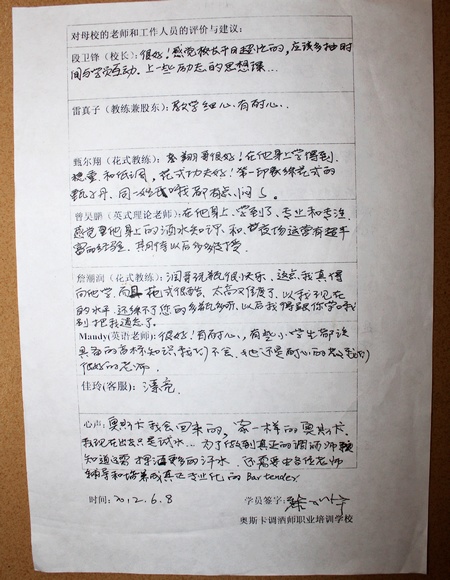 对母校的老师和工作人员的评价与建议:
段卫锋(校长):很好!感觉校长平日超忙的,应该多抽时
间与学员互动.上一些励志的思想课...
雷真子(教练兼股东):教学细心.有耐心..
甄尔翔(花式教练):翔哥很好!在他身上学得到.
稳重.和低调,花式功夫好!第一印象练花式的
同一
曾昊鹏(英式理论老师):在他身上.学到了、专业和专注.
感觉他身上的酒水知识、和夜场运营有超丰
富的经验.期待以后多多
詹潮润(花式教练):润哥玩瓶很小快乐.这点我真得
向他学.而且花式很酷.太高难度了.以我现在
的水平.还练不了您的以后我得跟你学
别把我
Mandy(英语老师):很好!有耐心、有些小学生都该
具备的音标知识我们不会、她还耐心的教我们
很好的老师.
佳玲(客服):漂亮
心声:奥斯卡我会回来的.家一样的奥斯卡.
我现在出去只是试水...为了做到真正的调酒师
知道还需挥洒更多的汗水.还需要各位老师
辅导和培养成真正专业化的Bartender
时间:2012.6.8 学员签字:
奥斯卡调酒师职业培训学校